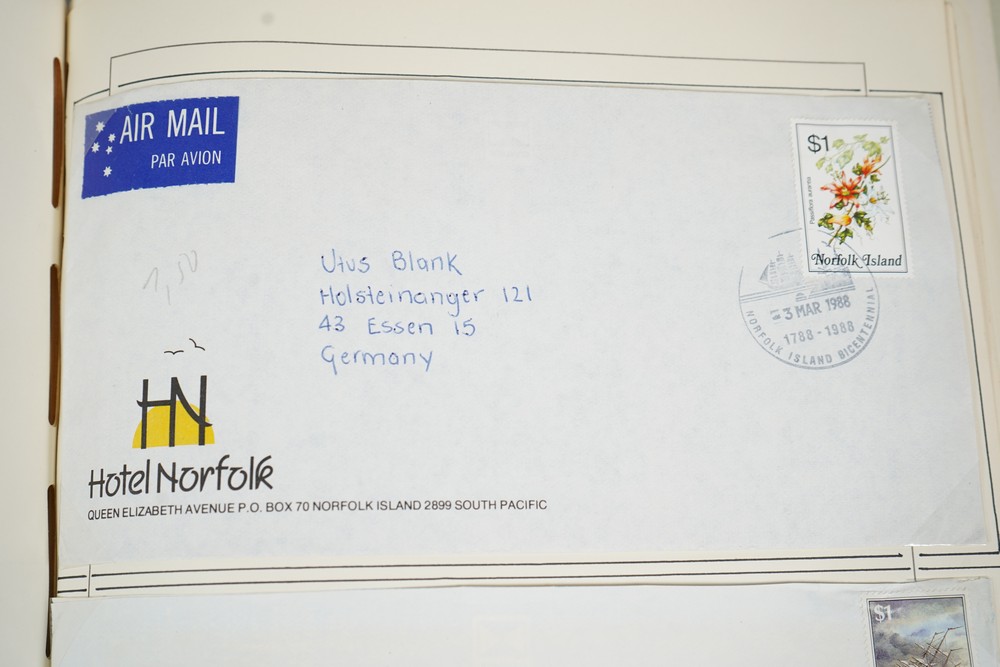 AIR MAIL
PAR AVION
$1
Norfolk Island
3 MAR 1988
1788-1988
NORFOLK ISLAND BICENTENNIAL
1,50
Utus Blank
Holsteinanger 121
43 Essen 15
Germany
HN
Hotel Norfolk
QUEEN ELIZABETH AVENUE P.O. BOX 70 NORFOLK ISLAND 2899 SOUTH PACIFIC
$1